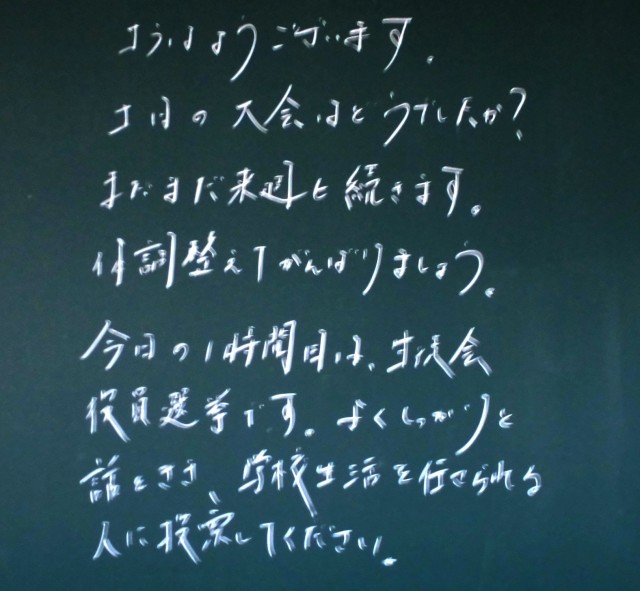 おはようございます。
土日の大会はどうでしたか?
まだまだ来週も続きます。
体調整えてがんばりましょう。
今日の1時間目は、生徒会
役員選挙です。よくしっかりと
話をきき、学校生活を任せられる
人に投票してください。